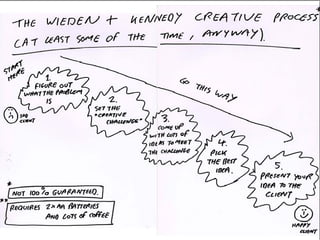 THE WIEDEN + KENNEDY CREATIVE PROCESS
(AT LEAST SOME OF THE TIME, ANYWAY).
START HERE
GO THIS WAY
1.
FIGURE OUT
WHAT THE PROBLEM
IS
SAD
CLIENT
2.
SET THE
"CREATIVE
CHALLENGE"
3.
COME UP
WITH LOTS OF
IDEAS TO MEET
THE CHALLENGE
4.
PICK
THE BEST
IDEA.
5.
PRESENT YOUR
IDEA TO THE
CLIENT
HAPPY
CLIENT
* NOT 100% GUARANTEED.
* REQUIRES 2 X AA BATTERIES
AND LOTS OF COFFEE